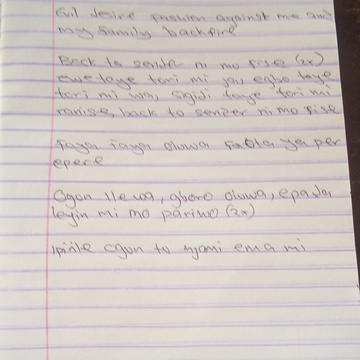 Evil desire fashion against me and
my family backfire
Back to sender ni mo fise (2x)
ewe taye tori mi ja, egbo taye
tori mi wa, sigidi taye tori mi
ranise, back to sender ni mo fise
Faya faya oluwa fabta ya per
epere
Ogun ile wa, gboro oluwa, epada
leyin mi mo pariwo (2x)
Ipinle ogun to njomi ema mi